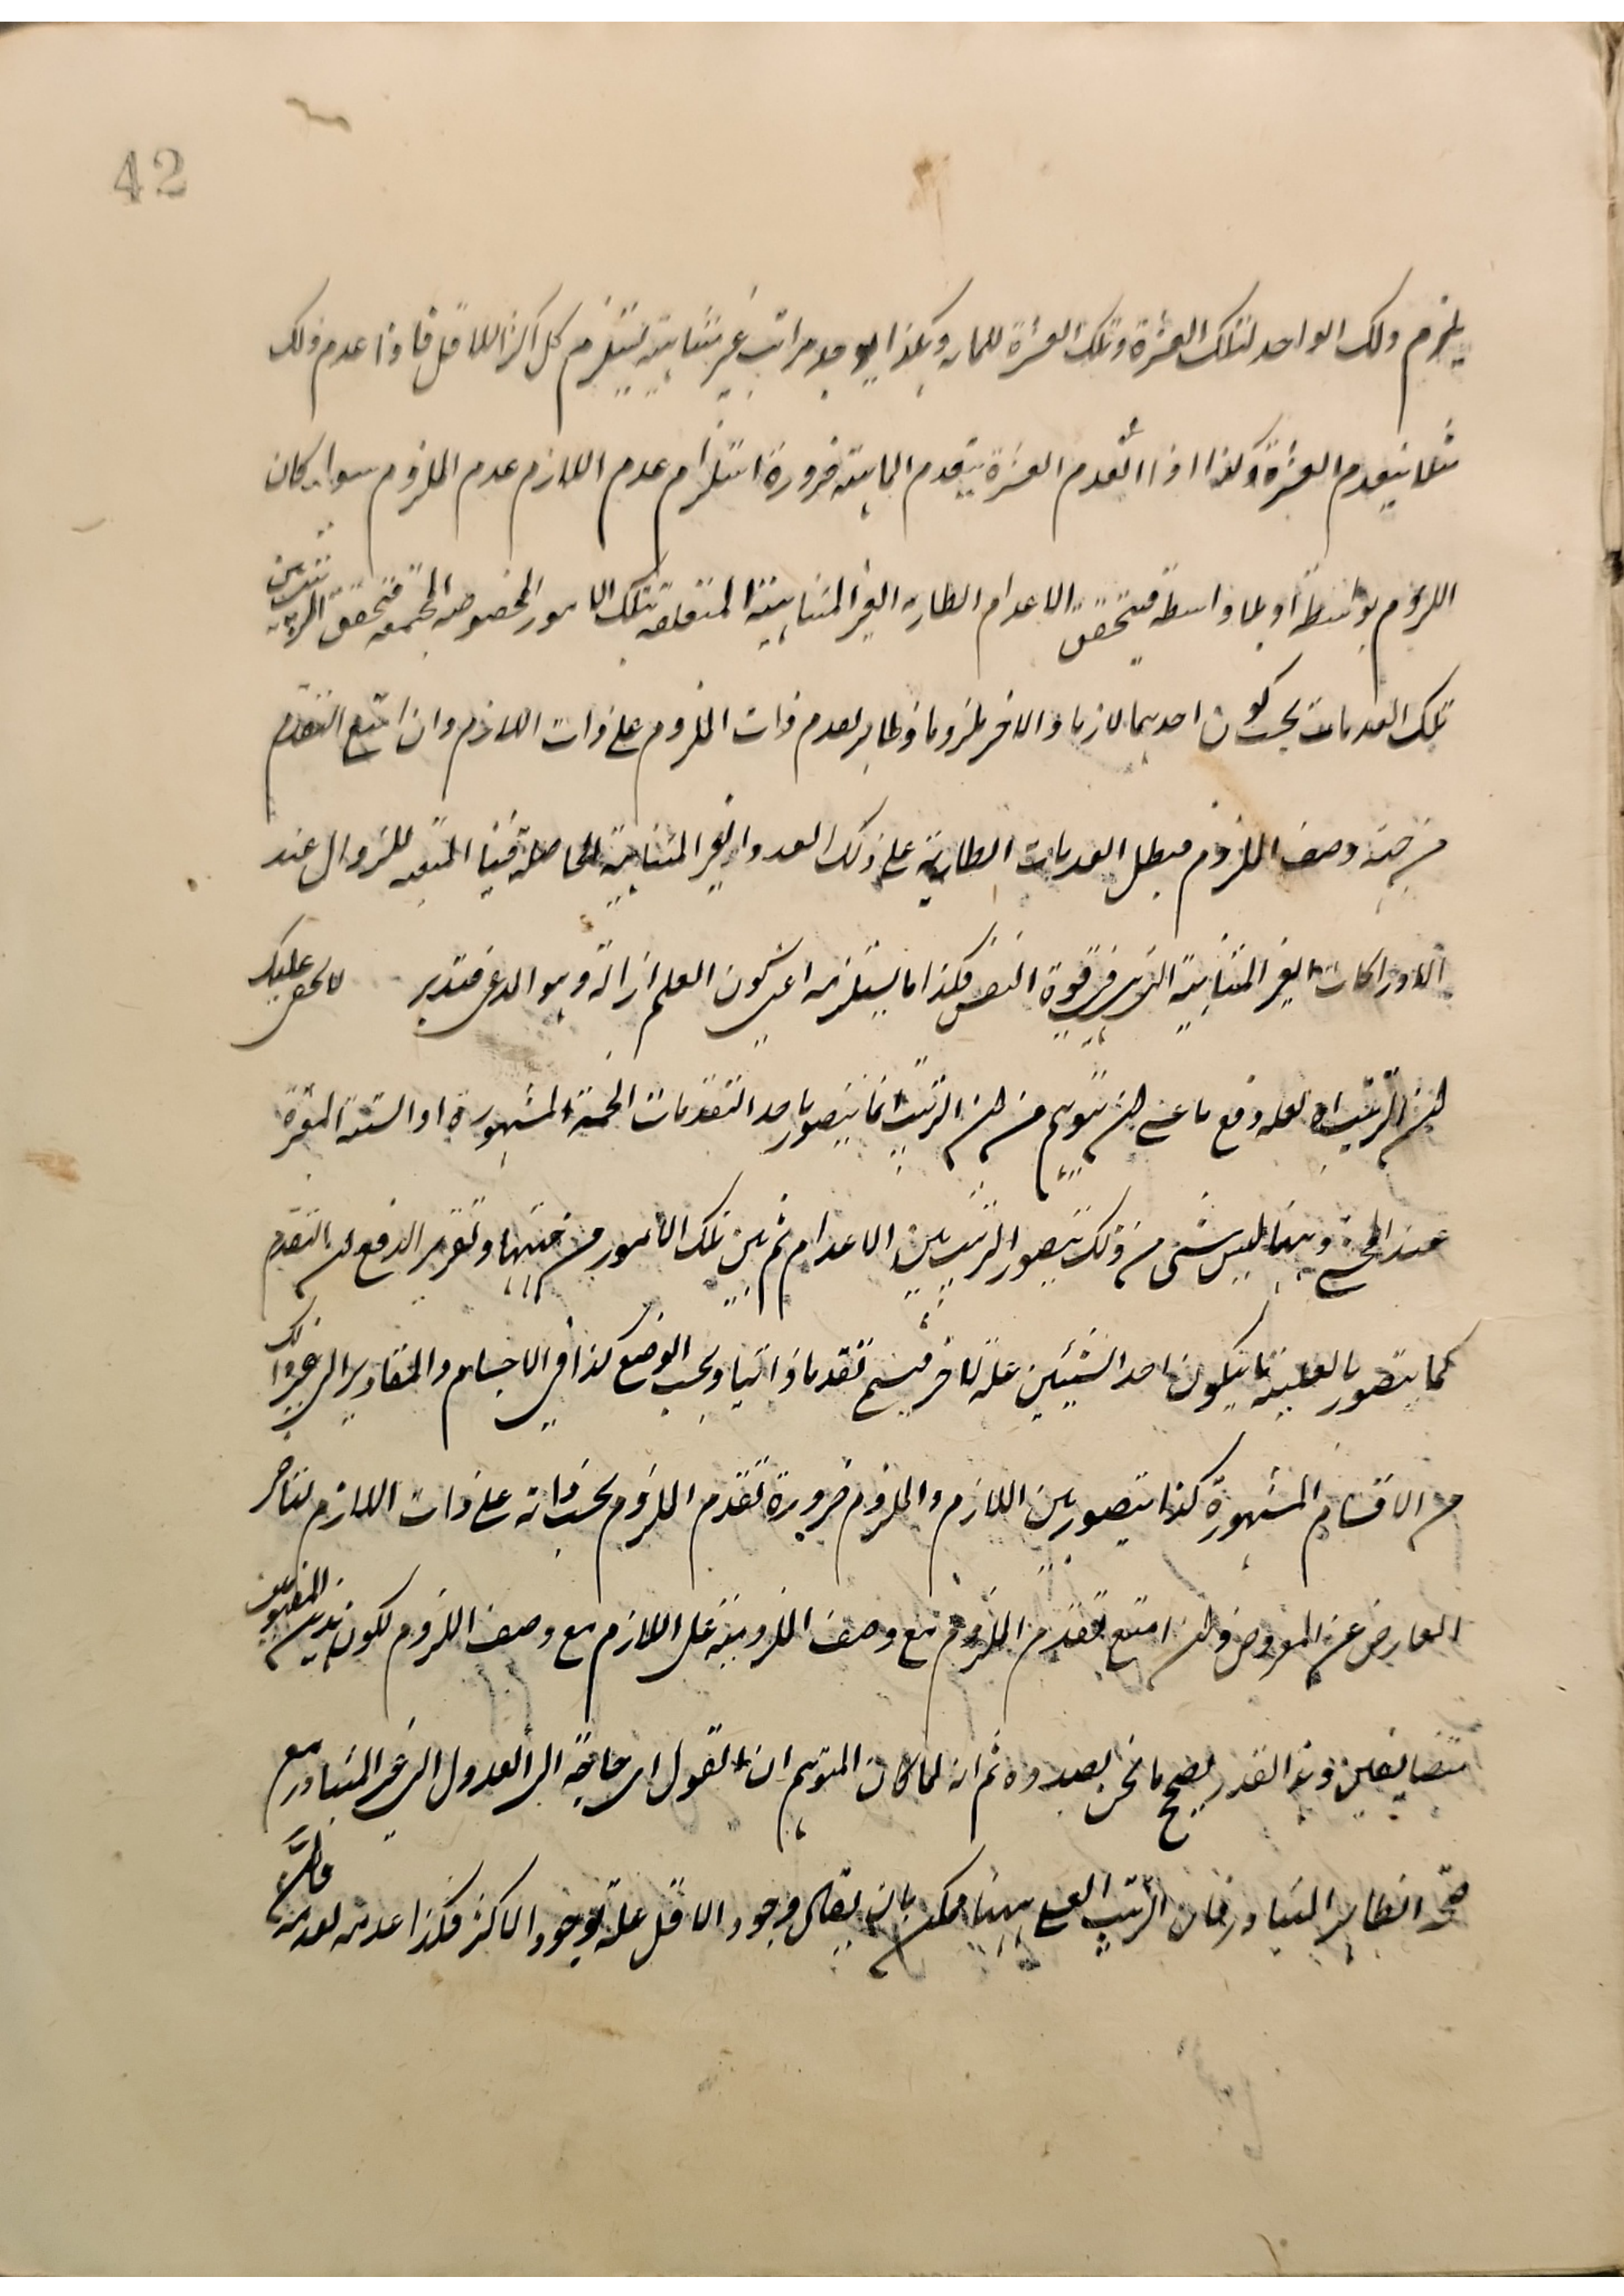 42
يلزم ذلك الواحد لتلك العشرة وتلك العشرة للمائة وهكذا يوجد مراتب غير متناهية يستلزم كل اكثر للاقل فاذا عدم ذلك
مثلا ينعدم العشرة وكذا اذا انعدم العشرة ينعدم المائة ضرورة استلزام عدم اللازم عدم الملزوم سواء كان
اللزوم بواسطة او بلا واسطة فيتحقق الاعدام الطارية الغير المتناهية المتعلقة بتلك الامور المخصوصة المجتمعة فتحقق الترتيب بين
تلك العدمات بحسب كون احديهما لازما والاخر ملزوما وظاهر تقدم ذات الملزوم على ذات اللازم وان امتنع التقدم
من حيث وصف اللزوم فبطل العدمات الطارية على ذلك العدد الغير المتناهية الحاصلة فينا المتعدد للزوال عند
الادراكات الغير المتناهية التي في قوة النفس فكذا ما يستلزمه اعني كون العلم ازالة وهو المدعى فتدبر لا يخفى عليك
ان الترتيب اه لعله دفع ما عسى ان يتوهم من ان الترتيب انما يتصور باحد التقدمات الخمسة المشهورة او الستة المقررة
عند وههنا ليس شئ من ذلك يتصور الترتيب بين الاعدام ثم بين تلك الامور من جهتها وتقرير الدفع ان التقدم
كما يتصور بالعلية بان يكون احد الشيئين علة للاخر فيسمى تقدما ذاتيا وبحسب الوضع كذا في الاجسام والمقادير الى غير ذلك
من الاقسام المشهورة كذا يتصور بين اللازم والملزوم ضرورة تقدم الملزوم بحسب ذاته على ذات اللازم لتاخر
العارض عن المعروض وان امتنع تقدم الملزوم مع وصف الملزومية على اللازم مع وصف اللزوم لكون هذين المفهومين
متضايفين وهذا القدر يصحح ما نحن بصدده ثم انه لما كان المتوهم ان يقول اي حاجة الى العدول الى غير المتبادر مع
صحة الظاهر المتبادر فان الترتيب العلي ههنا ممكن بان يقال وجود الاقل علة لوجود الاكثر فكذا عدمه لعدمه